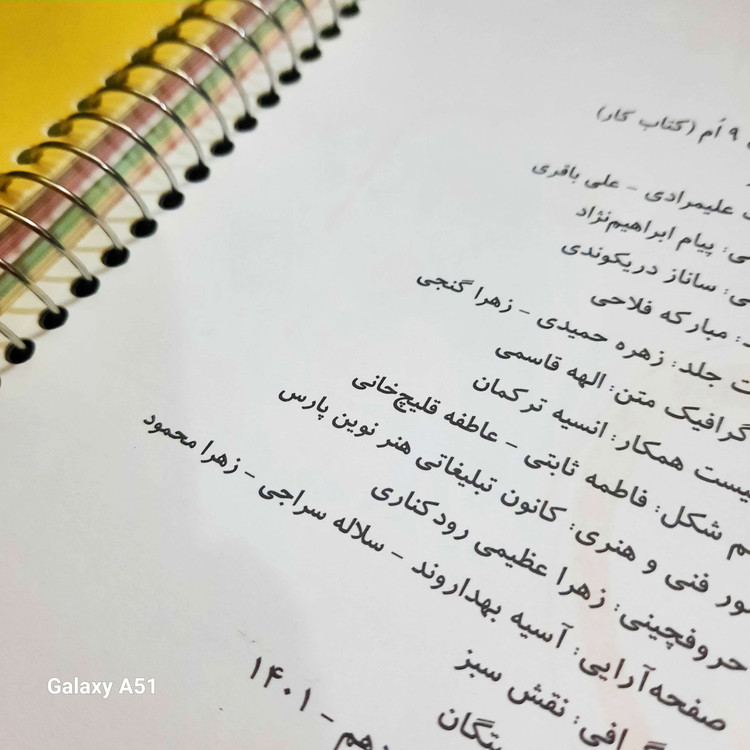 ۹ اُم (کتاب کار)
علیمرادی - علی باقری
پیام ابراهیم‌نژاد
ساناز دریکوندی
مبارکه فلاحی
جلد: زهره حمیدی - زهرا گنجی
گرافیک متن: الهه قاسمی
همکار: انسیه ترکمان
شکل: فاطمه ثابتی - عاطفه قلیچ‌خانی
فنی و هنری: کانون تبلیغاتی هنر نوین پارس
حروفچینی: زهرا عظیمی رودکناری
صفحه‌آرایی: آسیه بهداروند - سلاله سراجی - زهرا محمود
نقش سبز
- ۱۴۰۱
Galaxy A51